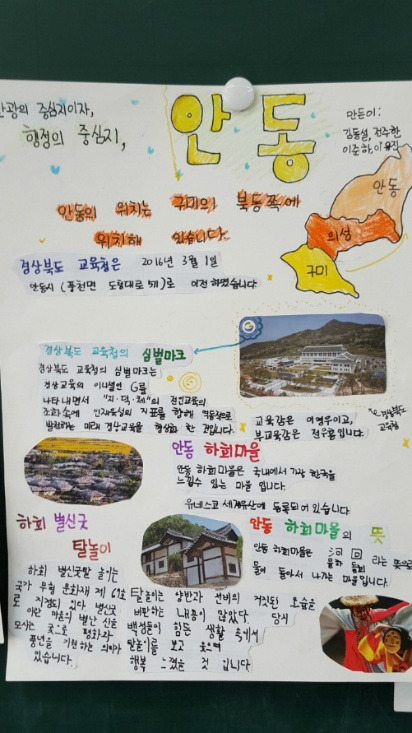 관광의 중심지이자,
행정의 중심지,
안동
만든이:
안동의 위치는 구미의 북동쪽에
위치해 있습니다.
안동
의성
구미
경상북도 교육청은 2016년 3월 1일
안동시 (풍천면 도청대로 511)로 이전 하였습니다
경상북도 교육청의 심벌마크
경상북도 교육청의 심벌마크는
경상교육의 이니셜인 G를
나타내면서 "지·덕·체"의 전인교육의
조화속에 인재육성의 지표를 향해 역동적으로
발전하는 미래 경상교육을 형상화 한 것입니다.
교육감은 이영우이고,
부교육감은 전우홍입니다.
경상북도
교육청
안동 하회마을
안동 하회마을은 국내에서 가장 한국을
느낄수 있는 마을 입니다.
유네스코 세계유산에 등록되어 있습니다
하회 별신굿
탈놀이
안동 하회마을의 뜻
안동 하회마을은 河 回 라는 뜻으로
물하 돌회
물이 돌아서 나가는 마을입니다.
하회 별신굿탈 놀이는
국가 무형 문화재 제 69호
로 지정되어 있다 별신굿
이란 마을의 별난 신을
모시는 굿으로 평화와
풍년을 기원하는 의미가
있습니다.
탈놀이는 양반과 선비의 거짓된 모습을
비판하는 내용이 많았다 당시
백성들이 힘든 생활 속에서
탈놀이를 보고 웃으며
행복 느꼈을 것 입니다